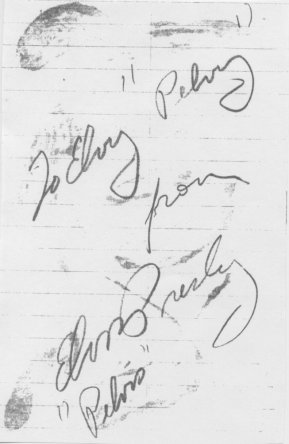 To Elvy "Pelvy"
from
Elvis Presley
"Pelvis"